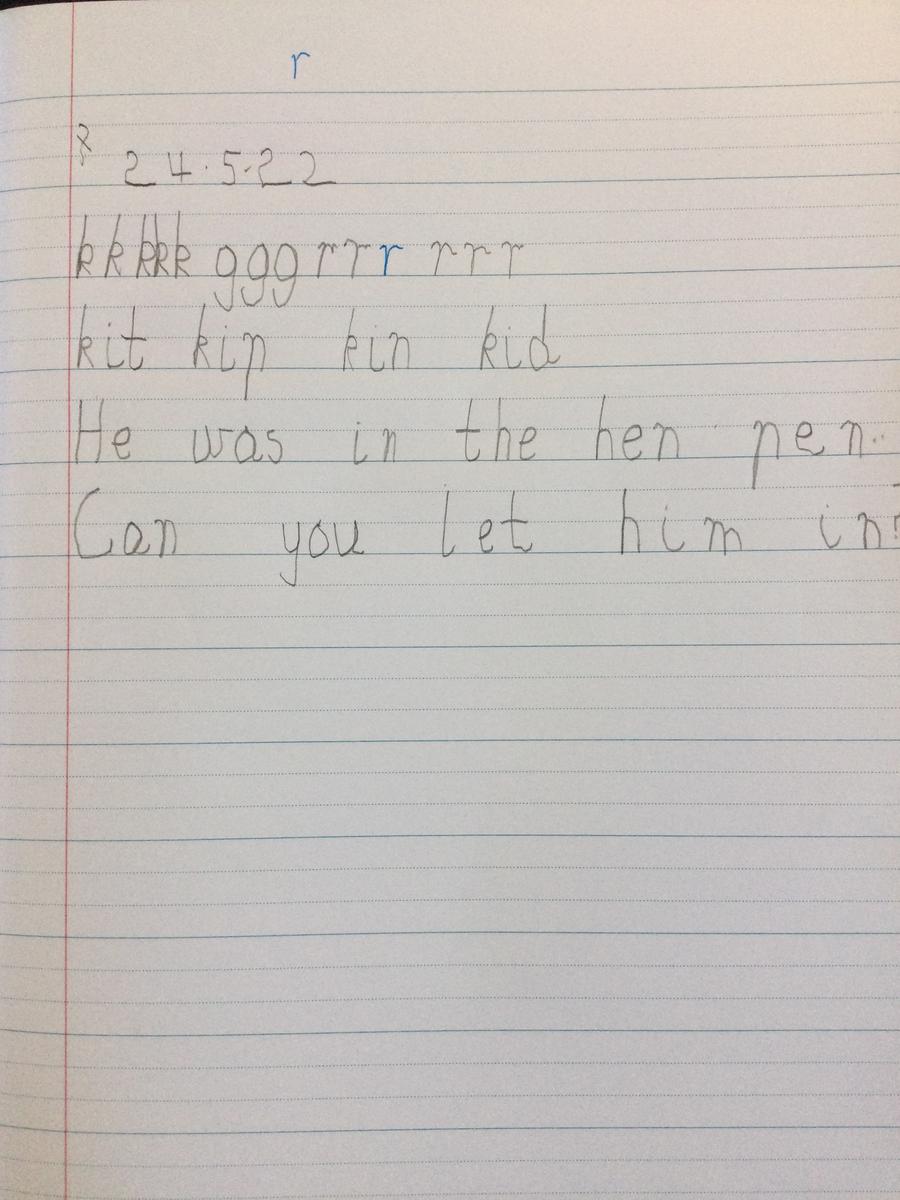 r
24.5.22
kkkkk ggg rrr rrr
kit kip kin kid
He was in the hen pen.
Can you let him in?